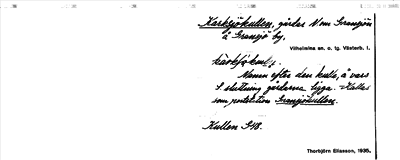 Karksjökullen, gårdar N om Gransjön
å Gransjö by.
Vilhelmina sn. o. tg. Västerb. l.
Namn efter den kulle, å vars
S. sluttning gårdarna ligga. Kallas
som postktion Gransjökullen.
Kullen S48.
Thorbjörn Eliasson, 1935.